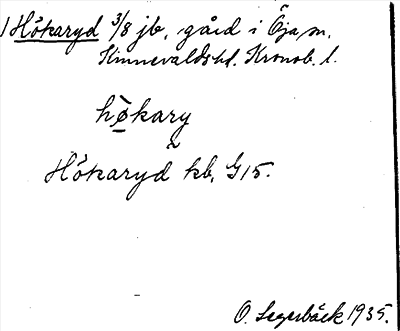 1 Hökaryd 3/8 jb, gård i Öja sn,
Kinnevalds hd. Kronob. l.
hø̀kary
~
Hökaryd kb, G15.
O. Lagerbäck 1935.